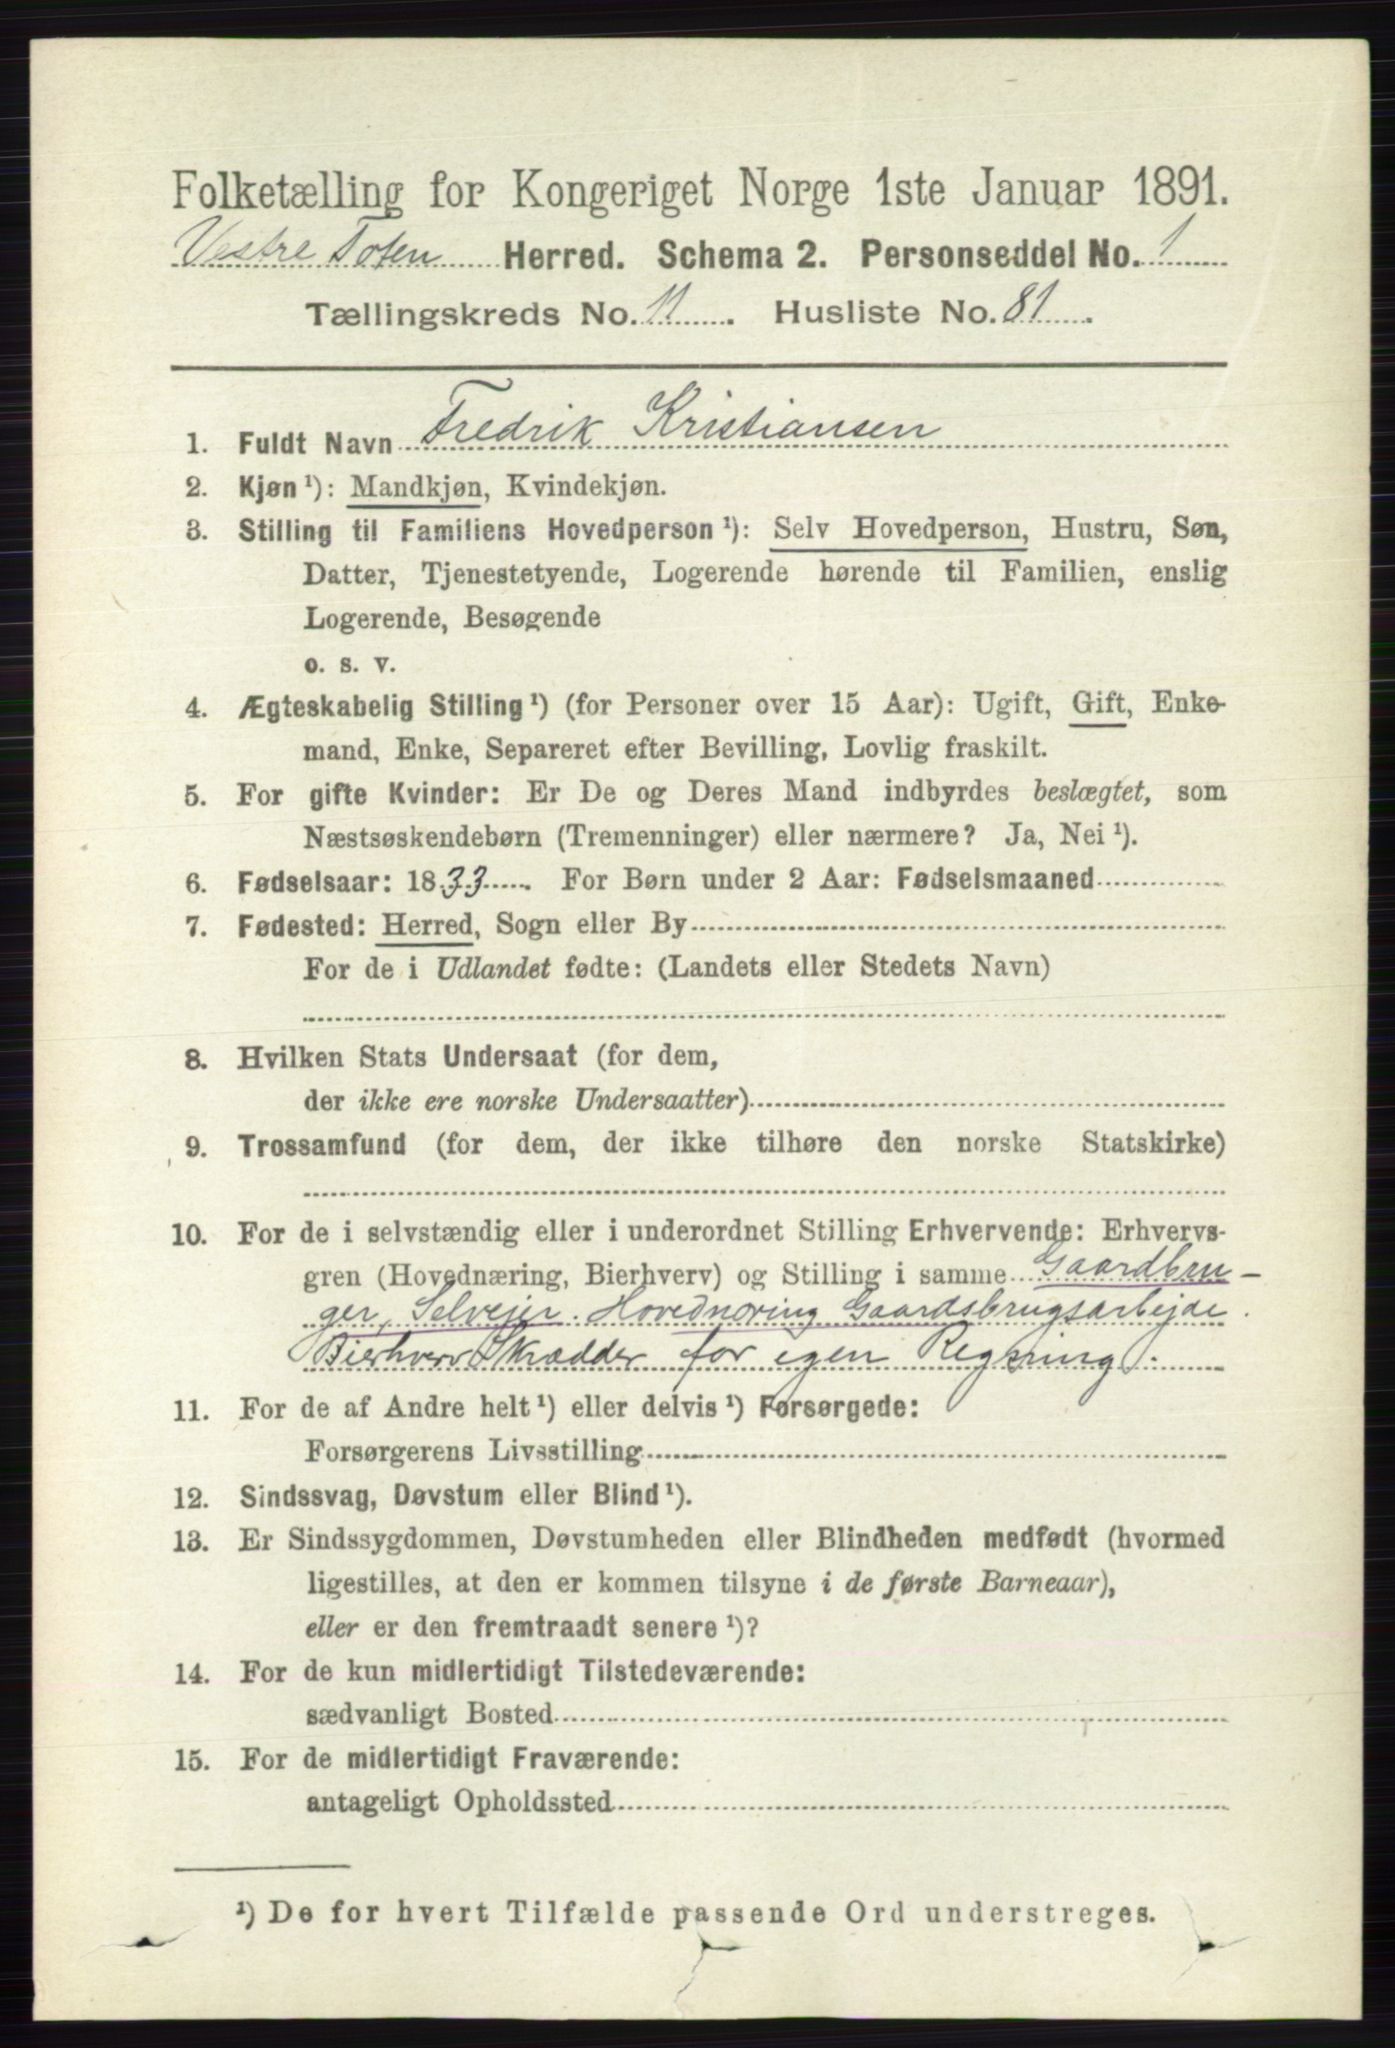 Folketælling for Kongeriget Norge 1ste Januar 1891.
Vestre Toten Herred. Schema 2. Personseddel No. 1
Tællingskreds No. 11. Husliste No. 81.
1. Fuldt Navn Fredrik Kristiansen
2. Kjøn ¹): Mandkjøn, Kvindekjøn.
3. Stilling til Familiens Hovedperson ¹): Selv Hovedperson, Hustru, Søn,
Datter, Tjenestetyende, Logerende hørende til Familien, enslig
Logerende, Besøgende
o. s. v.
4. Ægteskabelig Stilling ¹) (for Personer over 15 Aar): Ugift, Gift, Enke-
mand, Enke, Separeret efter Bevilling, Lovlig fraskilt.
5. For gifte Kvinder: Er De og Deres Mand indbyrdes beslægtet, som
Næstsøskendebørn (Tremenninger) eller nærmere? Ja, Nei ¹).
6. Fødselsaar: 1833. For Børn under 2 Aar: Fødselsmaaned
7. Fødested: Herred, Sogn eller By
For de i Udlandet fødte: (Landets eller Stedets Navn)
8. Hvilken Stats Undersaat (for dem,
der ikke ere norske Undersaatter)
9. Trossamfund (for dem, der ikke tilhøre den norske Statskirke)
10. For de i selvstændig eller i underordnet Stilling Erhvervende: Erhvervs-
gren (Hovednæring, Bierhverv) og Stilling i samme Gaardbru-
ger, Selvejer. Hovednæring Gaardsbrugsarbejde.
Bierhverv Skrædder for egen Regning.
11. For de af Andre helt ¹) eller delvis ¹) Forsørgede:
Forsørgerens Livsstilling
12. Sindssvag, Døvstum eller Blind ¹).
13. Er Sindssygdommen, Døvstumheden eller Blindheden medfødt (hvormed
ligestilles, at den er kommen tilsyne i de første Barneaar),
eller er den fremtraadt senere ¹)?
14. For de kun midlertidigt Tilstedeværende:
sædvanligt Bosted
15. For de midlertidigt Fraværende:
antageligt Opholdssted
¹) De for hvert Tilfælde passende Ord understreges.